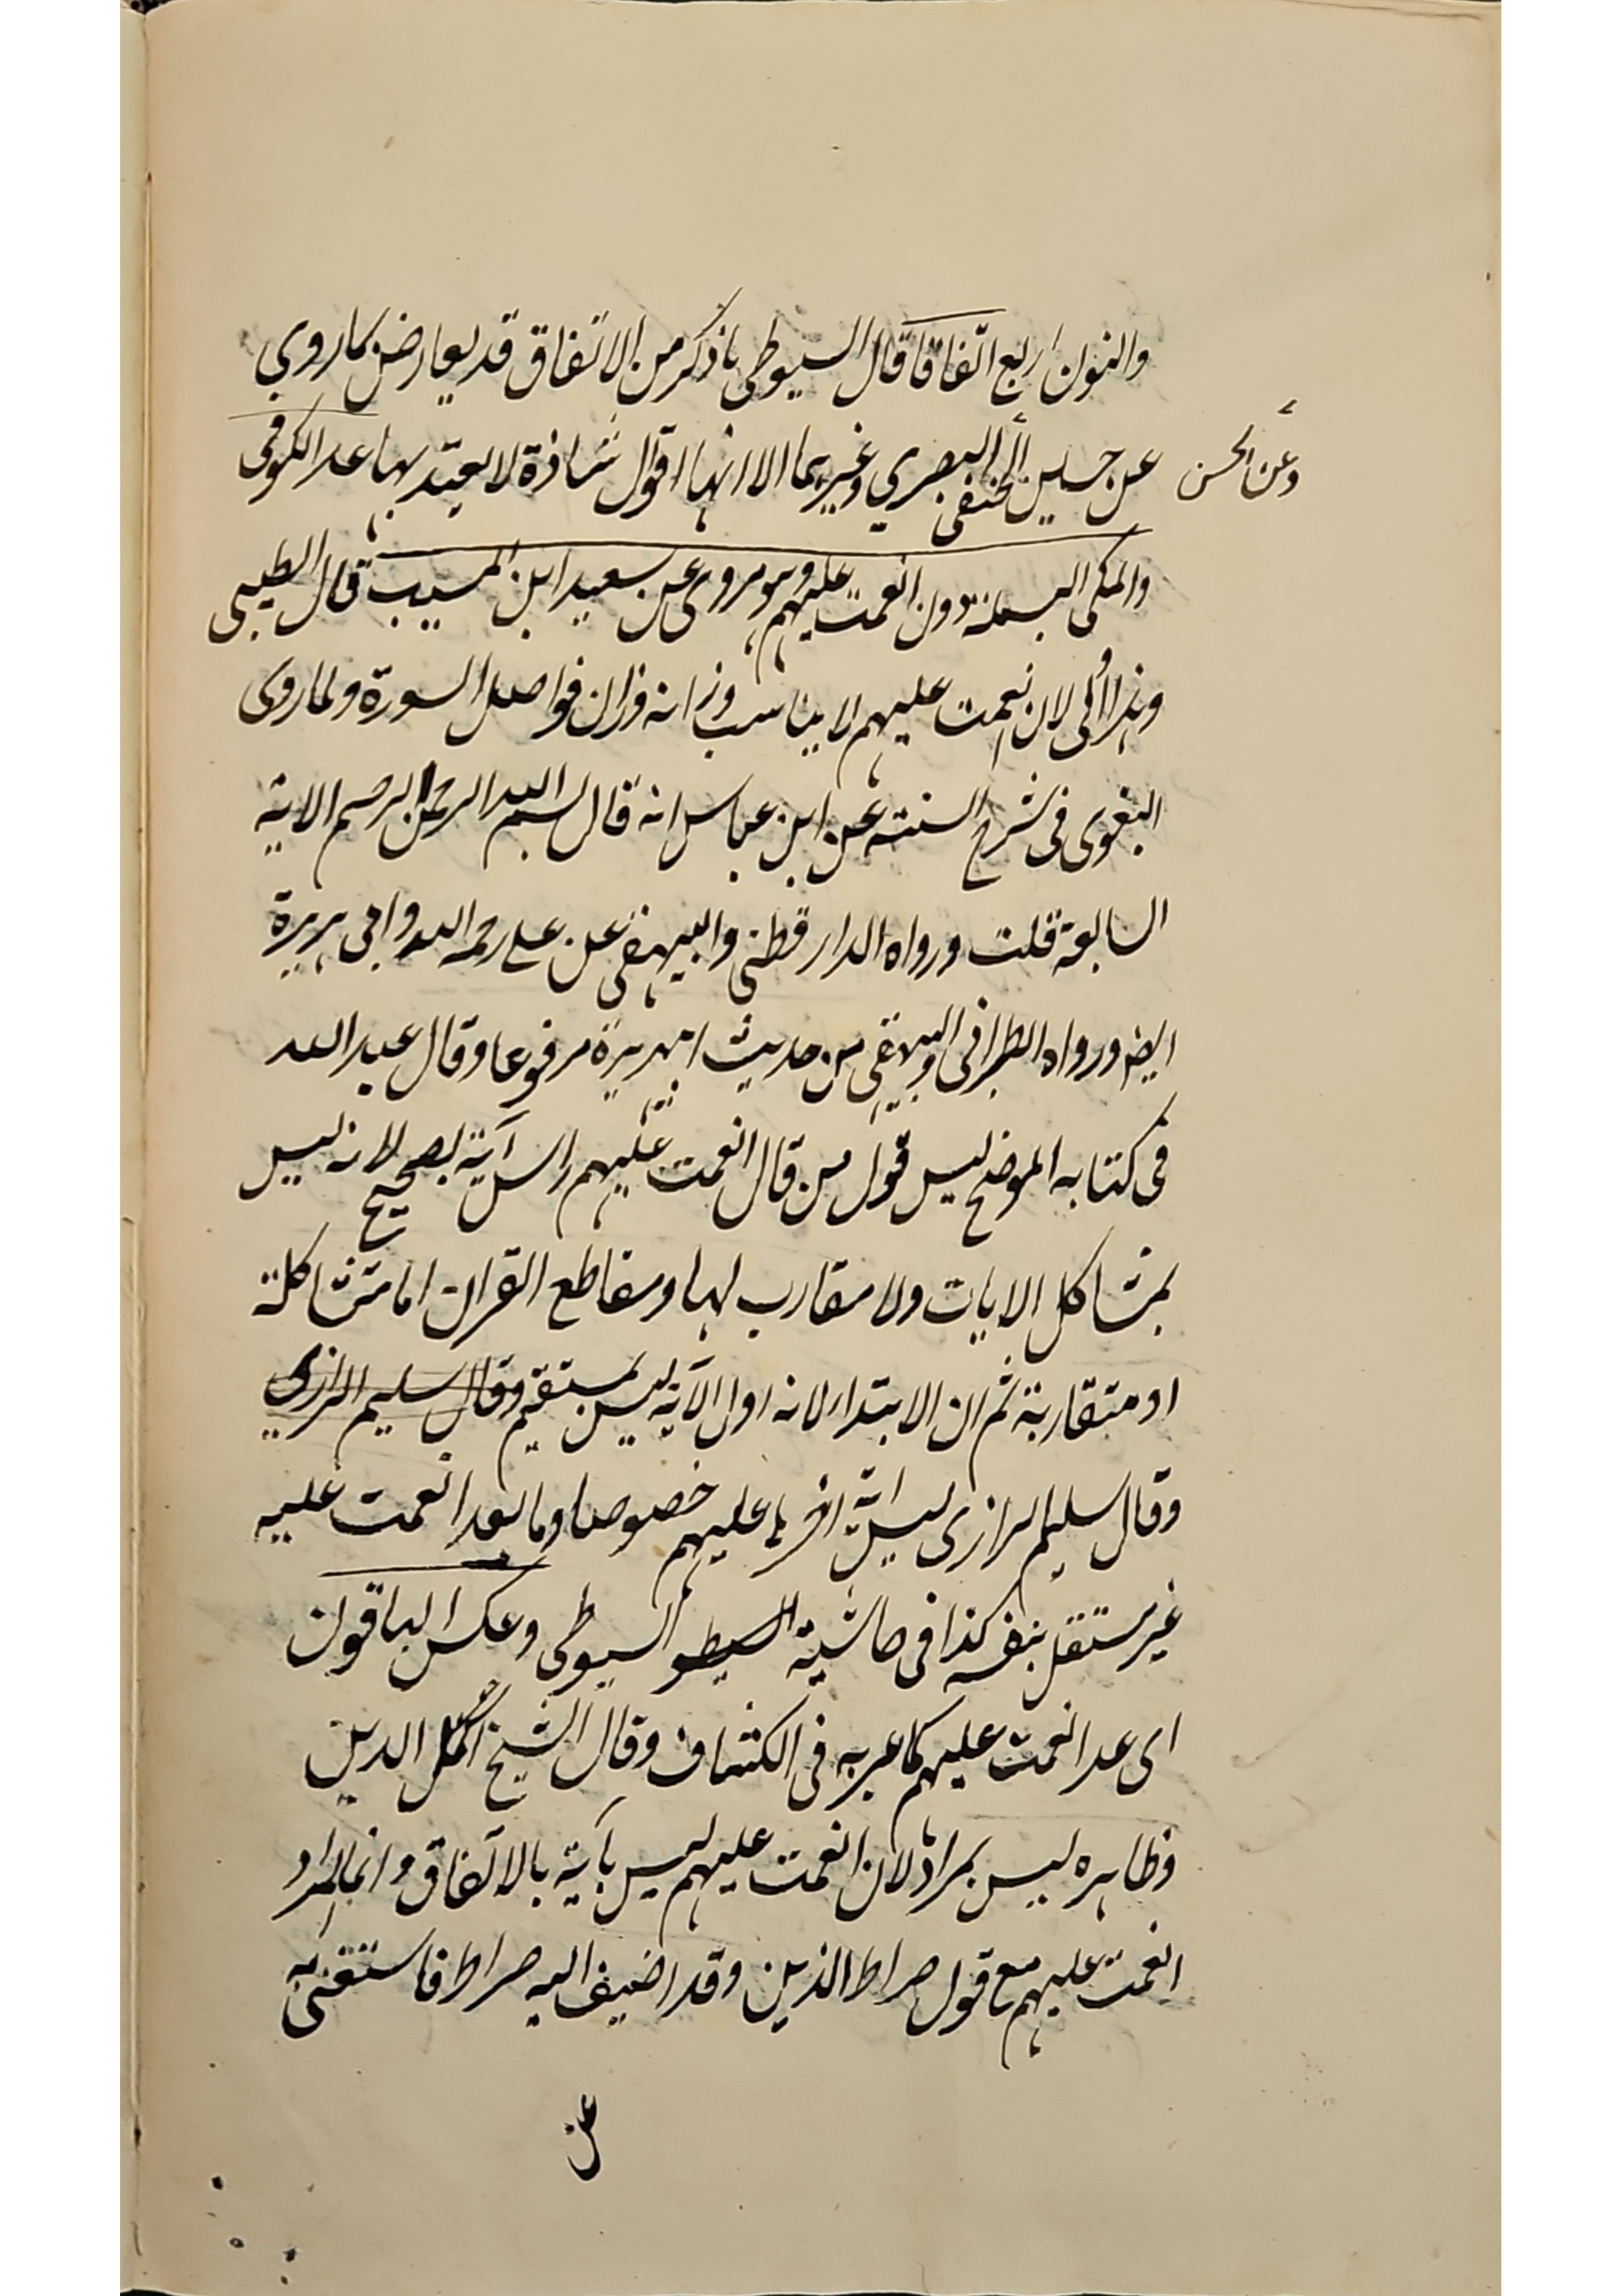 والنون اربع اتفاقا قال السيوطي ما ذكر من الاتفاق قد يعارض بما روي
عن حسين الحنفي البصري وغيرهما الا انها اقوال شاذة لا يعتد بها عد الكوفي
وعن الحسن
والمكي البسملة دون انعمت عليهم وهو مروى عن سعيد ابن المسيب قال الطيبى
وهذا أولى لان انعمت عليهم لا يناسب وزانه وزان فواصل السورة ولما روى
البغوى في شرح السنته عن ابن عباس انه قال بسم الله الرحمن الرحيم الاية
السابعة قلت ورواه الدارقطنى والبيهقى عن على رحمه الله وابى هريرة
ايضا ورواه الطبرانى والبيهقى من حديث ابى هريرة مرفوعا وقال عبد الله
فى كتابه الموضح ليس قول من قال انعمت عليهم راس آية بصحيح لانه ليس
بمشاكل الايات ولا مقارب لها ومقاطع القران اما متشاكلة
او متقاربة ثم ان الابتداء لانه اول الآية ليس بمستقيم وقال سليم الرازى
وقال سليم الرازى ليس اية اخرها عليهم خصوصا وما بعد انعمت عليه
غير مستقل بنفسه كذا فى حاشية السيطو السيوطى وعكس الباقون
اى عد انعمت عليهم كما عبر به فى الكشاف وقال الشيخ اكمل الدين
وظاهره ليس بمراد لان انعمت عليهم ليس بآية بالاتفاق وانما المراد
انعمت عليهم مع قول صراط الذين وقد اضيف اليه صراط فاستغنى به
عن